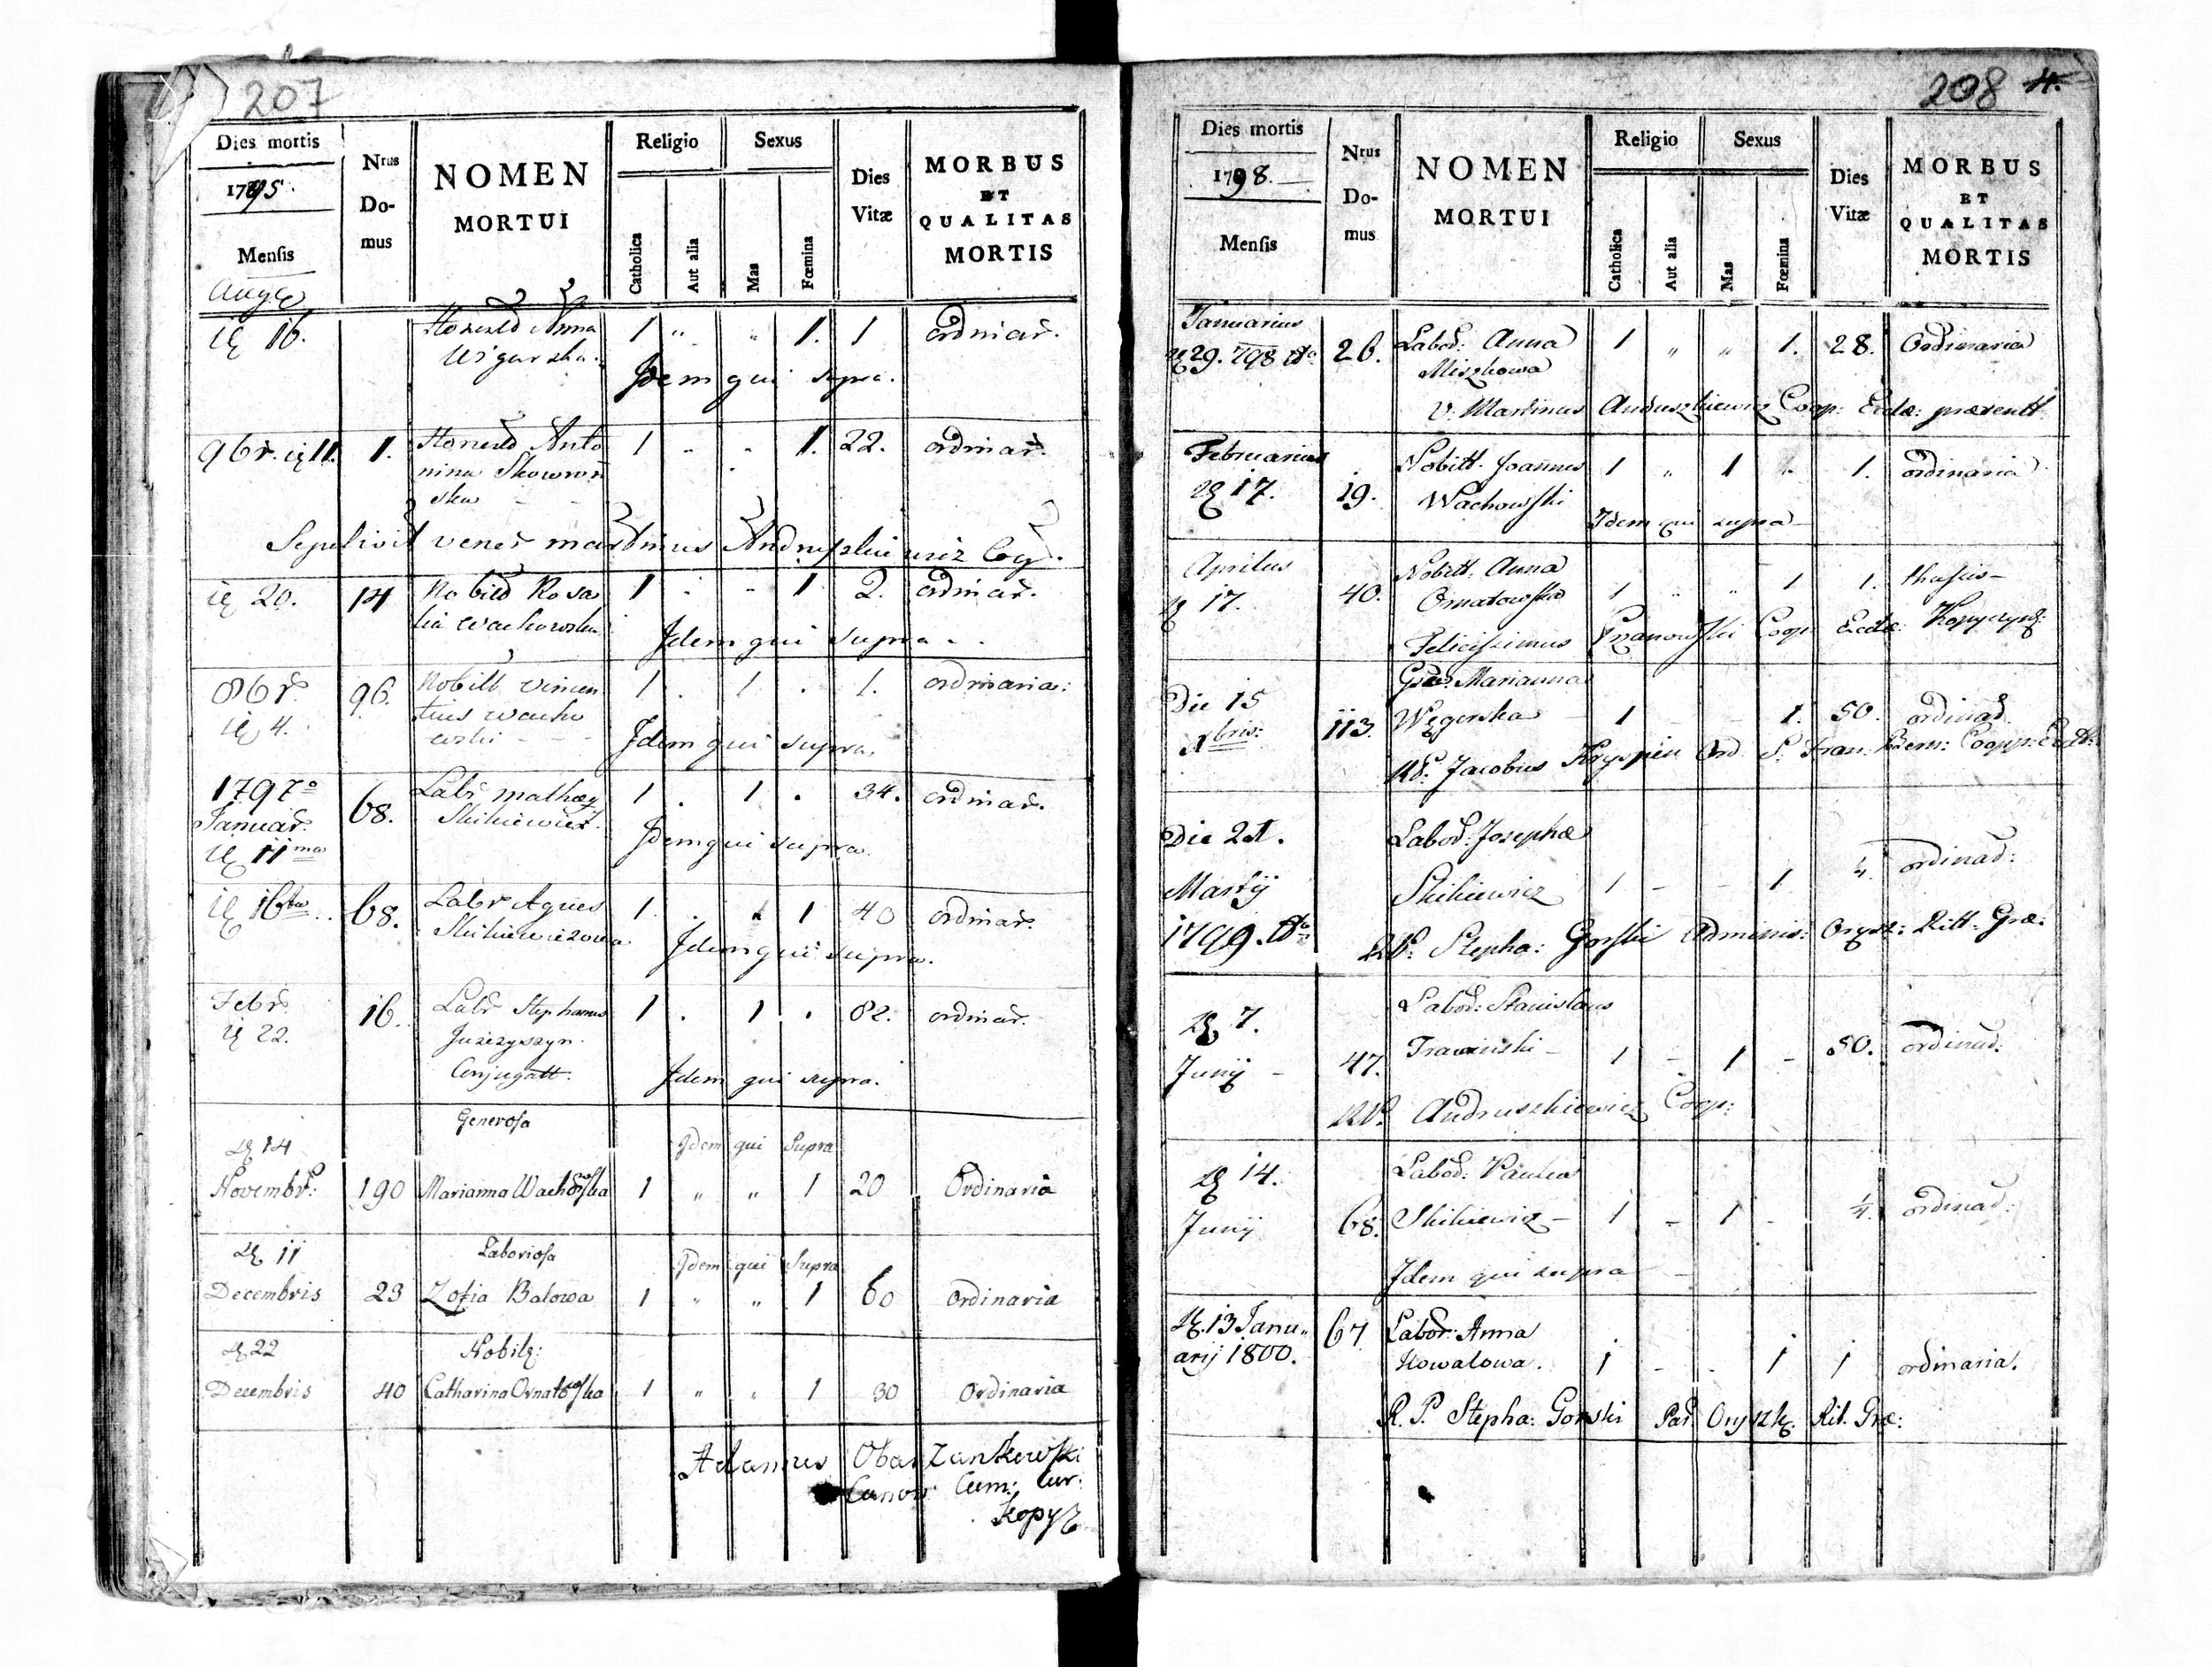 207
Dies mortis
1795.
Mensis
Nrus
Do-
mus
NOMEN
MORTUI
Religio
Catholica
Aut alia
Sexus
Mas
Fœmina
Dies
Vitæ
MORBUS
ET
QUALITAS
MORTIS
16.
Anna
1 " " 1. 1 ordinar.
Idem qui supra.
9br. 11. 1.
Anto
nina Skowroń
ska
1 - - 1. 22. ordinar.
Sepelivit vener martinus
20. 14
Nobil Rosa
lia Wachowska
1 - - 1 2. ordinar.
Idem qui supra
8br
4. 96.
Nobill vincen
tius wacho
wski
1 . 1 . 1. ordinaria:
Idem qui supra
1797o
Januar.
11ma 68.
Labr mathæy
Skikiewicz.
1 . 1 . 34. ordinar.
Idem qui supra.
16ta 68.
Labr Agnes
Skikiewiczowa
1 . . 1 40 ordinar.
Idem qui supra.
Febr.
22. 16.
Labr Stephanus
Juszczyszyn
Conjugatt.
1 . 1 . 82. ordinar.
Idem qui supra.
Generosa
Idem qui Supra
14
Novembr: 190 Marianna Wachowska 1 " " 1 20 Ordinaria
11 Laboriosa
Idem qui Supra
Decembris 23 Zofia Balowa 1 " " 1 60 Ordinaria
22 Nobilis:
Decembris 40 Catharina Ornatowska 1 " " 1 30 Ordinaria
Adamus Obarzankowski
Canon Cam: Cur:
Kopycz
208 4.
Dies mortis
1798.
Mensis
Nrus
Do-
mus
NOMEN
MORTUI
Religio
Catholica
Aut alia
Sexus
Mas
Fœmina
Dies
Vitæ
MORBUS
ET
QUALITAS
MORTIS
Januarius
29. 798 26.
Labor: Anna
Miszkowa
1 " " 1. 28. Ordinaria
V. Martinus Andruszkiewicz Coop: Ecclæ: præsentt.
Februarius
17. 19.
Nobill. Joannes
Wachowski
1 " 1 " 1. ordinaria
Idem qui supra
Aprilus
17. 40.
Nobill. Anna
Ornatowska
1 " " 1 1.
Felicissimus Coop: Ecclæ:
Die 15
Xbris: 113.
Marianna
Węgerska
1 - - 1. 50. ordinar.
Jacobus Kryspin Ord S. Fran: Bern: Coop:
Die 21.
Martij
1799.
Labor: Josepha
Skikiewicz
1 - - 1 ordinar:
Stepha: Gorski Adminis: Orysz: Ritt: Græ:
7.
Junij 47.
Labor: Stanislaus
Trawinski
1 - 1 - 50. ordinar.
Andruszkiewicz Coop:
14.
Junij 68.
Labor: Paulus
Skikiewicz
1 - 1 - 1/4. ordinar:
Idem qui supra
13 Janu"
arij 1800. 67
Labor: Anna
Kowalowa.
1 - - 1 1 ordinaria.
R. P. Stepha: Gorski Par Oryszk. Rit. Græ: